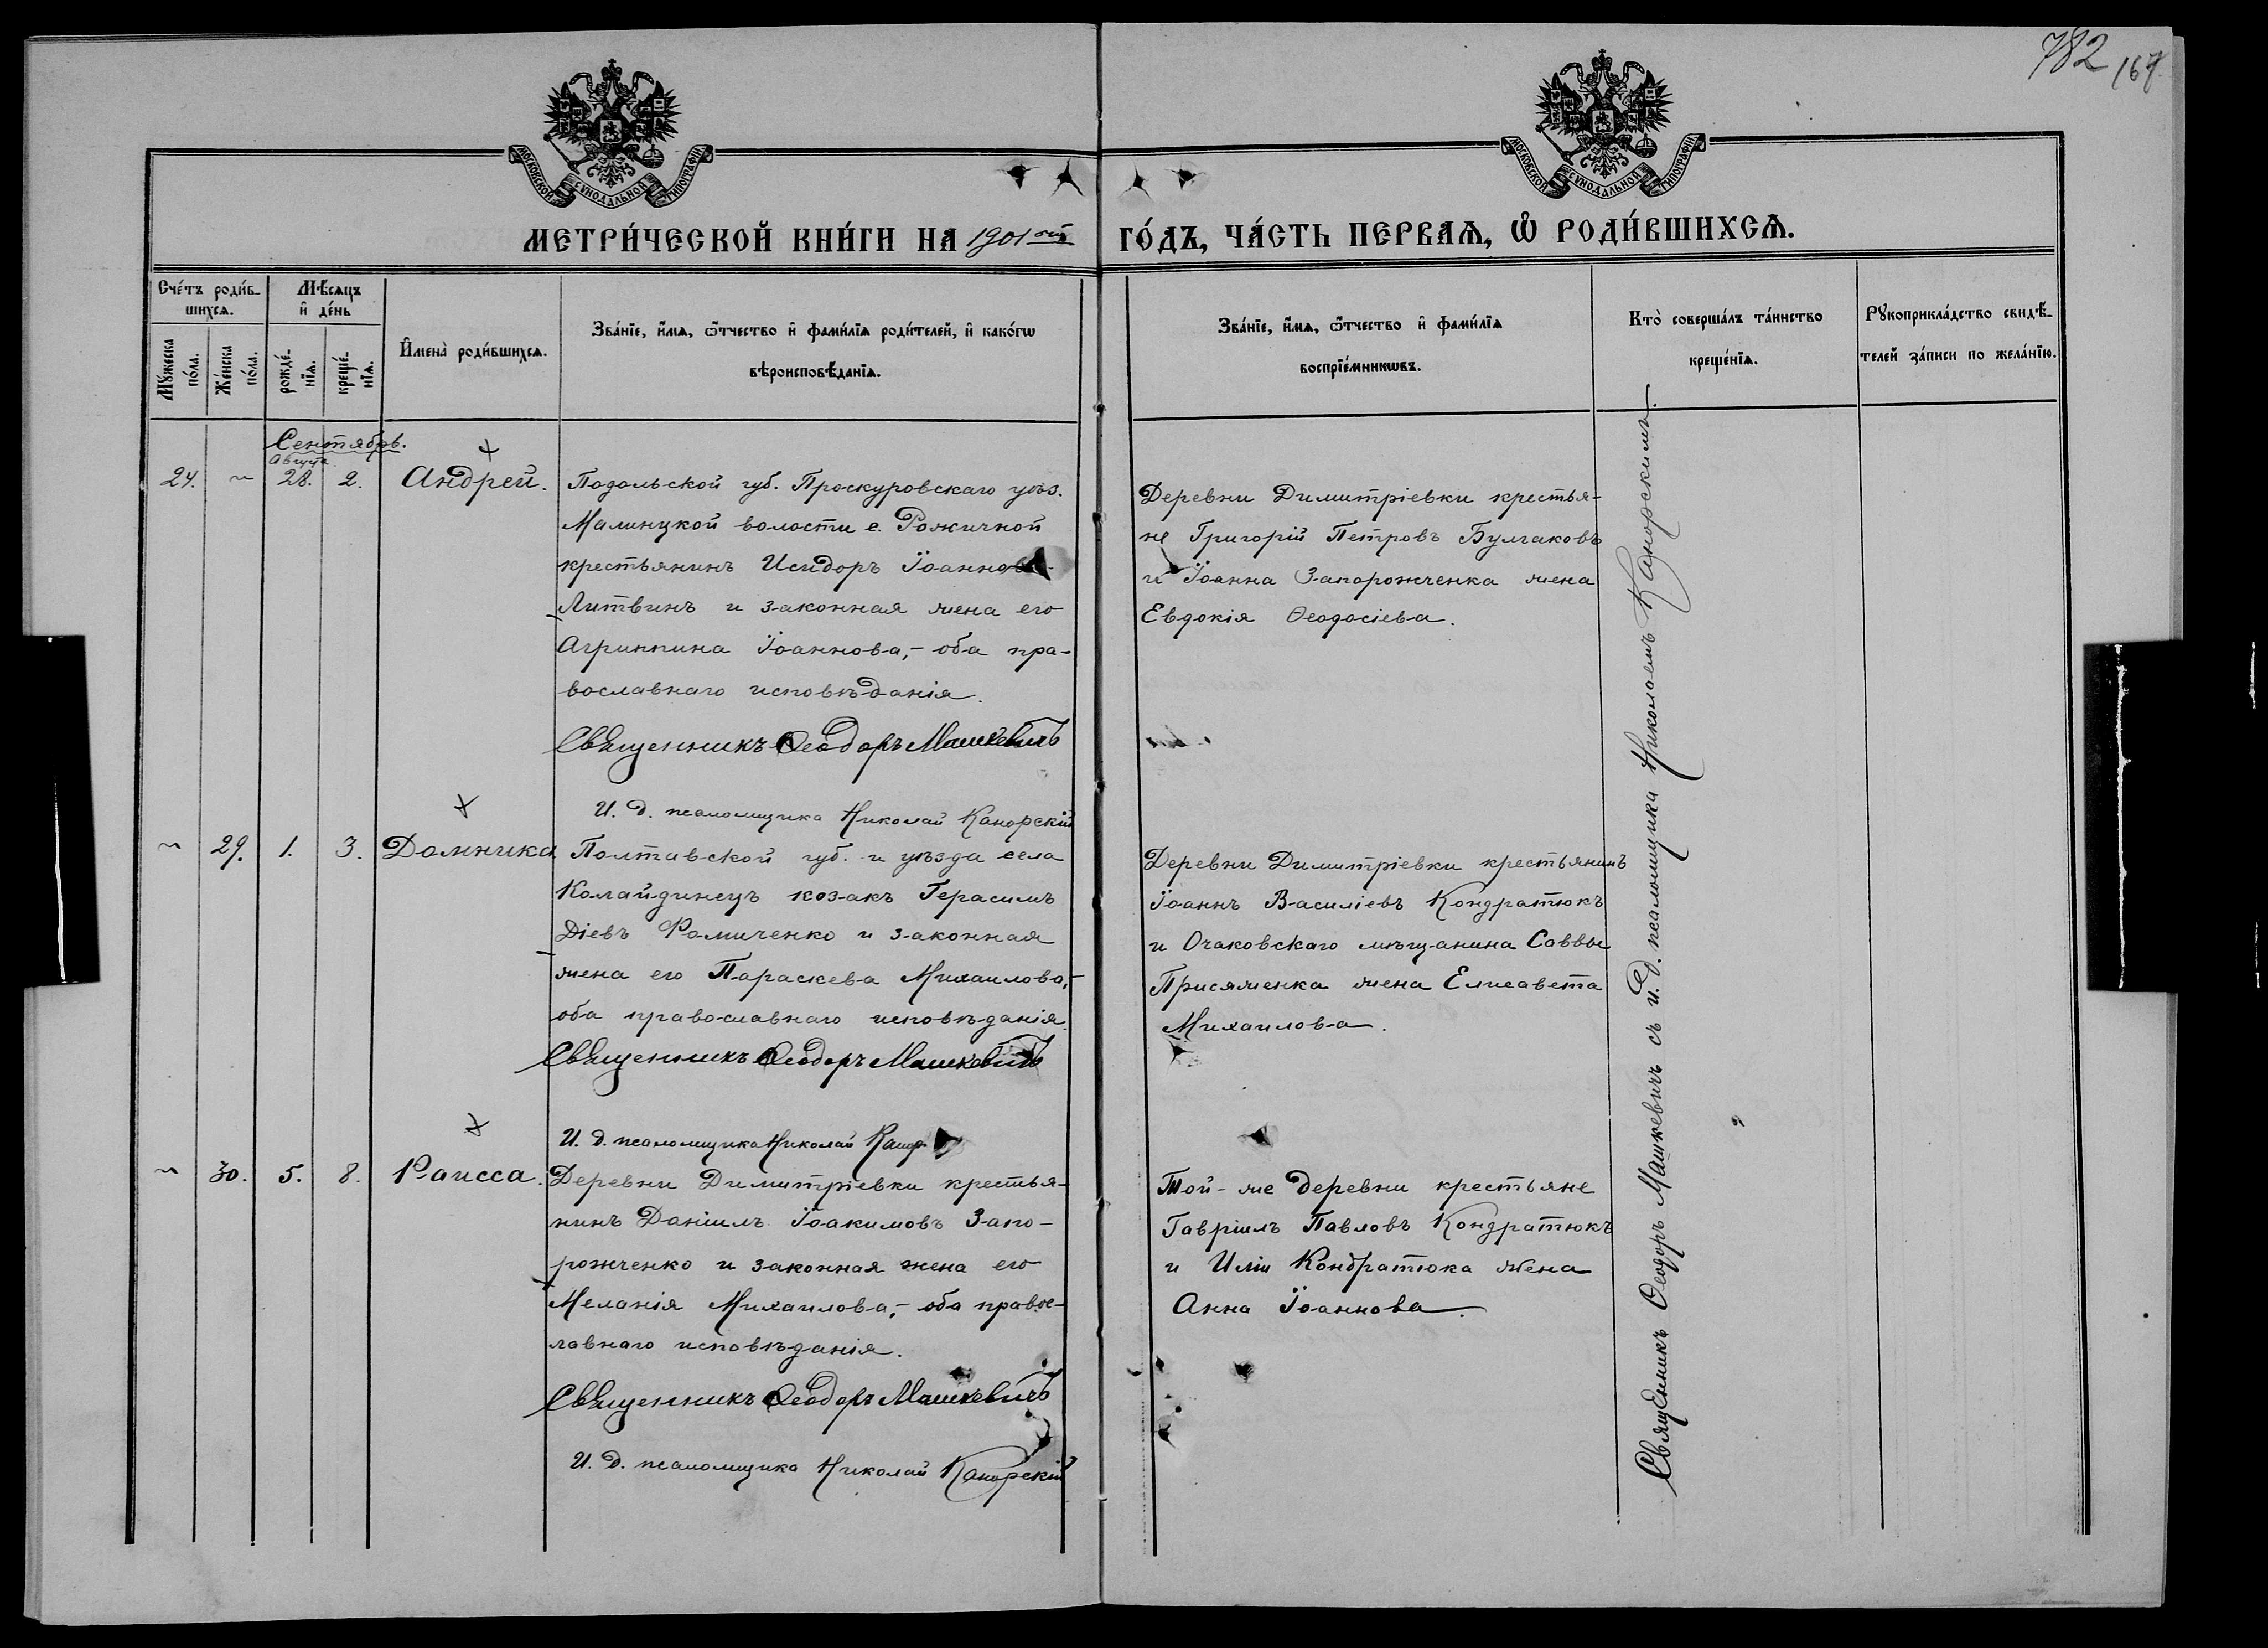 782 167
МОСКОВСКОЙ СУНОДАЛЬНОЙ ТИПОГРАФІИ.
МОСКОВСКОЙ СУНОДАЛЬНОЙ ТИПОГРАФІИ.
МЕТРИ́ЧЕСКОЙ КНИ́ГИ НА 1901ый ГО́ДЪ, ЧА́СТЬ ПЕРВАѦ, Ѡ҆ РОДИ́ВШИХСѦ.
Сче́тъ роди́в-
шихсѧ.
Мꙋ́жеска
по́ла.
Же́нска
по́ла.
Мѣ́сѧцъ
и҆ де́нь
рожде́-
нїѧ.
креще́-
нїѧ.
И҆мена̀ роди́вшихсѧ.
Зва́нїе, и҆́мѧ, ѻ҆́тчество и҆ фами́лїѧ роди́телей, и҆ како́гѡ
вѣроисповѣ́данїѧ.
Зва́нїе, и҆́мѧ, ѻ҆́тчество и҆ фами́лїѧ
воспрїе́мникѡвъ.
Кто̀ соверша́лъ та́инство
креще́нїѧ.
Рꙋкоприкла́дство свидѣ́-
телей за́писи по жела́нїю.
Сентябрь.
Августа
24. ~ 28. 2. Андрей.
Подольской губ. Проскуровскаго уѣз.
Малиницкой волости с. Рожичной
крестьянинъ Исидоръ Іоанновъ
Литвинъ и законная жена его
Агриппина Іоаннова,- оба пра-
вославнаго исповѣданія.
Священникъ Ѳеодоръ Машкевичъ
И. д. псаломщика Николай Канорскій
Деревни Димитріевки крестья-
не Григорій Петровъ Булгаковъ
и Іоанна Запорожченка жена
Евдокія Ѳеодосіева.
~ 29. 1. 3. Домника
Полтавской губ. и уѣзда села
Колайдинецъ козакъ Герасимъ
Діевъ Фомиченко и законная
жена его Параскева Михаилова,-
оба православнаго исповѣданія.
Священникъ Ѳеодоръ Машкевичъ
И. д. псаломщика Николай Канор
Деревни Димитріевки крестьянинъ
Іоаннъ Василіевъ Кондратюкъ
и Очаковскаго мѣщанина Саввы
Присяженка жена Елисавета
Михаилова.
~ 30. 5. 8. Раисса.
Деревни Димитріевки крестья-
нинъ Даніилъ Іоакимовъ Запо-
рожченко и законная жена его
Меланія Михаилова,- оба правос-
лавнаго исповѣданія.
Священникъ Ѳеодоръ Машкевичъ
И. д. псаломщика Николай Канорскій
Той-же деревни крестьяне
Гавріилъ Павловъ Кондратюкъ
и Иліи Кондратюка жена
Анна Іоаннова.
Священникъ Ѳеодоръ Машкевичъ съ и. д. псаломщика Николаемъ Канорскимъ.